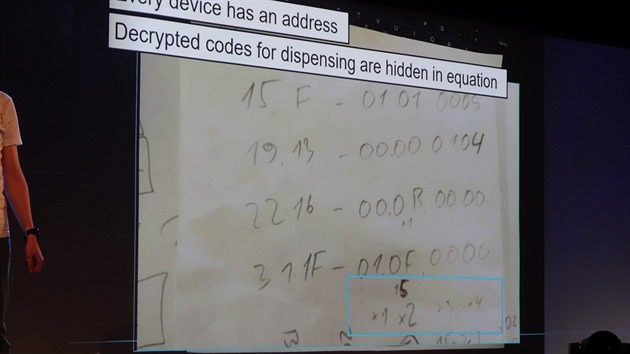 Every device has an address
Decrypted codes for dispensing are hidden in equation
15. F - 01 01 0005
19.13 - 00.00 0104
22 16 - 00.0B.00 00
31.1F - 01.0F.0000
15
x1 x2 x3 x4